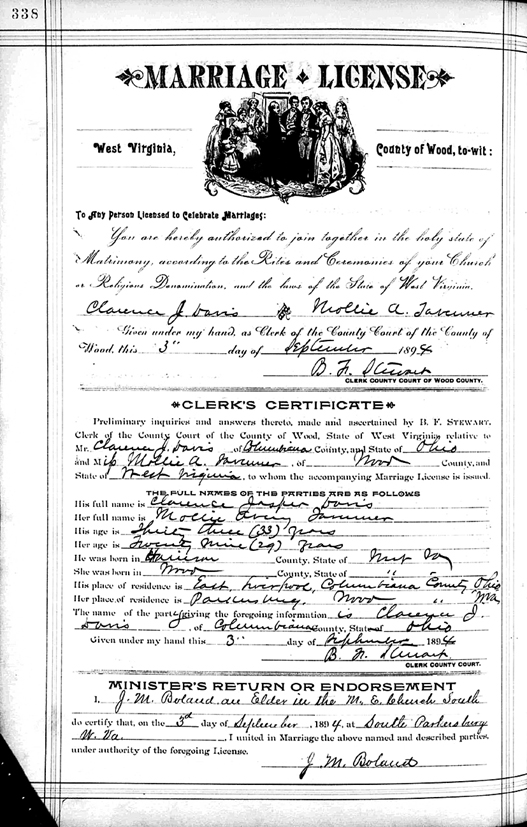 338
MARRIAGE LICENSE
West Virginia, County of Wood, to-wit:
To Any Person Licensed to Celebrate Marriages:
You are hereby authorized to join together in the holy state of
Matrimony, according to the Rites and Ceremonies of your Church
or Religious Denomination, and the laws of the State of West Virginia.
Clarence J. Davis & Mollie A. Tavenner
Given under my hand, as Clerk of the County Court of the County of
Wood, this 3" day of September 1894
B. F. Stewart
CLERK COUNTY COURT OF WOOD COUNTY.
CLERK'S CERTIFICATE
Preliminary inquiries and answers thereto, made and ascertained by B. F. STEWART,
Clerk of the County Court of the County of Wood, State of West Virginia relative to
Mr. Clarence J. Davis of Columbiana County, and State of Ohio
and Miss Mollie A. Tavenner, of Wood County, and
State of West Virginia, to whom the accompanying Marriage License is issued.
THE FULL NAMES OF THE PARTIES ARE AS FOLLOWS
His full name is Clarence Jasper Davis
Her full name is Mollie Tavenner
His age is Thirty three (33) years
Her age is Twenty Nine (29) years
He was born in Harrison County, State of West Va
She was born in Wood County, State of "
His place of residence is East Liverpool, Columbiana County Ohio
Her place of residence is Parkersburg, Wood " W Va
The name of the party giving the foregoing information is Clarence J.
Davis, of Columbiana County, State of Ohio
Given under my hand this 3" day of September 1894
B. F. Stewart
CLERK COUNTY COURT.
MINISTER'S RETURN OR ENDORSEMENT
I, J. M. Boland an Elder in the M. E. Church South
do certify that, on the 3d day of September, 1894 at South Parkersburg
W. Va., I united in Marriage the above named and described parties,
under authority of the foregoing License.
J. M. Boland